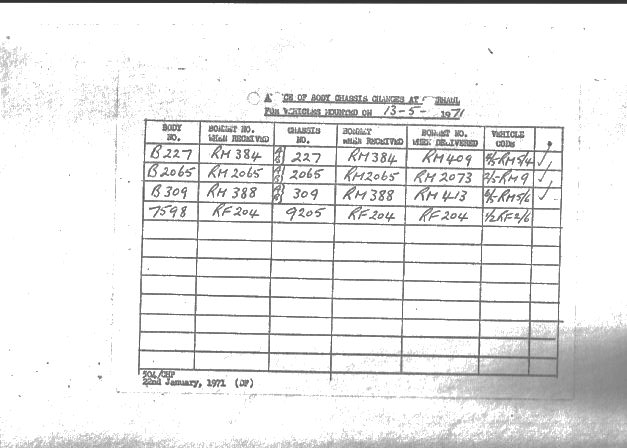 OF BODY CHASSIS CHANGES AT
FOR VEHICLES MOUNTED ON 13-5- 1971
BODY NO. BONNET NO. WHEN RECEIVED CHASSIS NO. BONNET WHEN RECEIVED BONNET NO. WHEN DELIVERED VEHICLE CODE
B227 RM384 227 RM384 RM409 ✓
B2065 RM2065 2065 RM2065 RM2073 2/5RM9 ✓
B309 RM388 309 RM388 RM413 ✓
7598 RF204 9205 RF204 RF204 1/2RF2/6
504/CHP
22nd January, 1971 (DF)